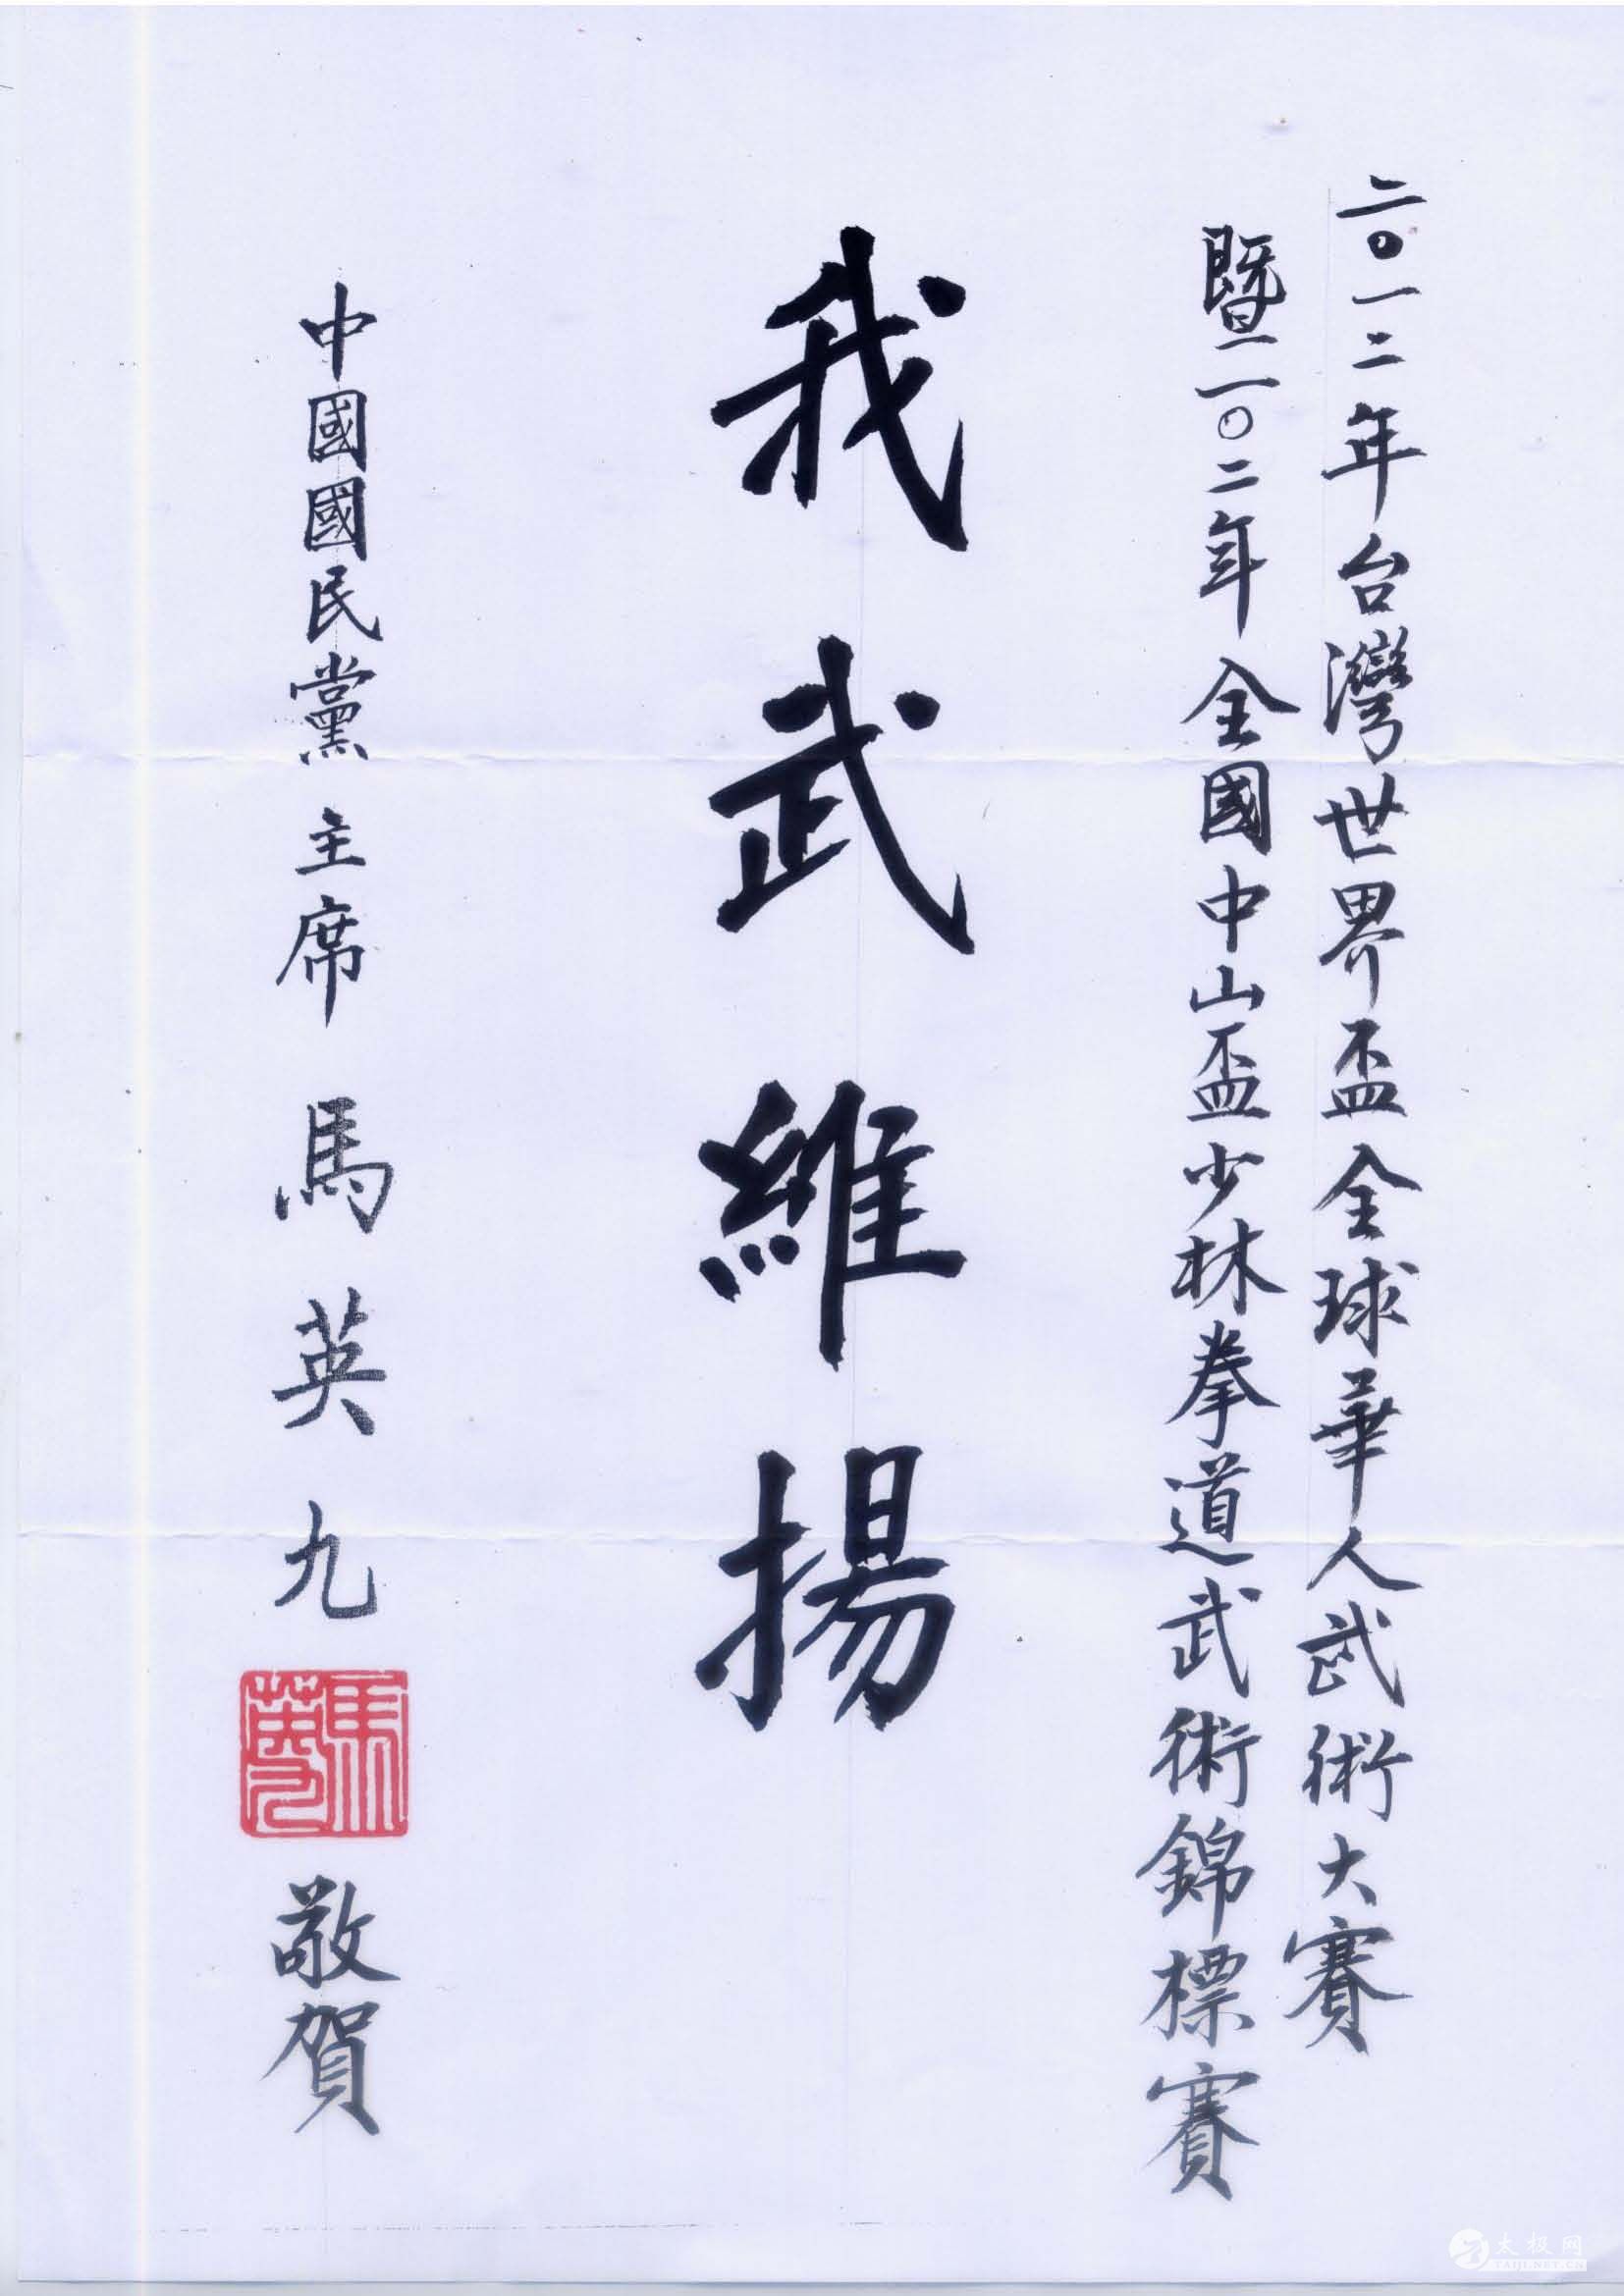 二〇一二年台灣世界盃全球華人武術大賽
暨一〇二年全國中山盃少林拳道武術錦標賽
我武維揚
中國國民黨主席馬英九
馬英九
敬賀
太极网
TAIJI.NET.CN